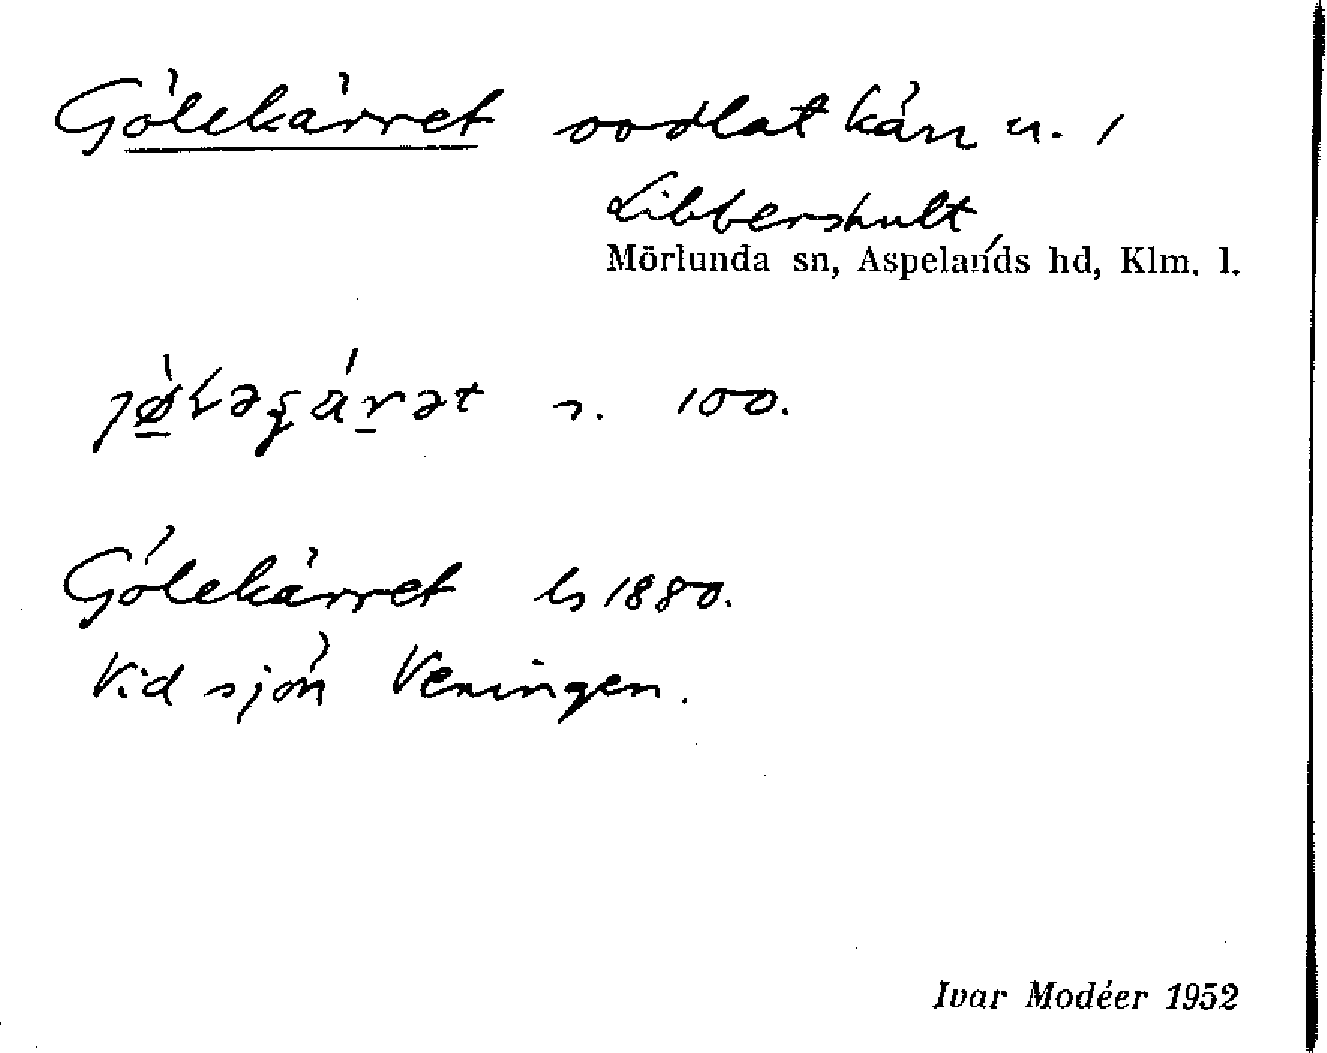 Gölekärret oodlat kärr u. /
Libbershult,
Mörlunda sn, Aspelands hd, Klm. l.
s. 100.
Gölekärret ls 1880.
Vid sjön Veningen.
Ivar Modéer 1952